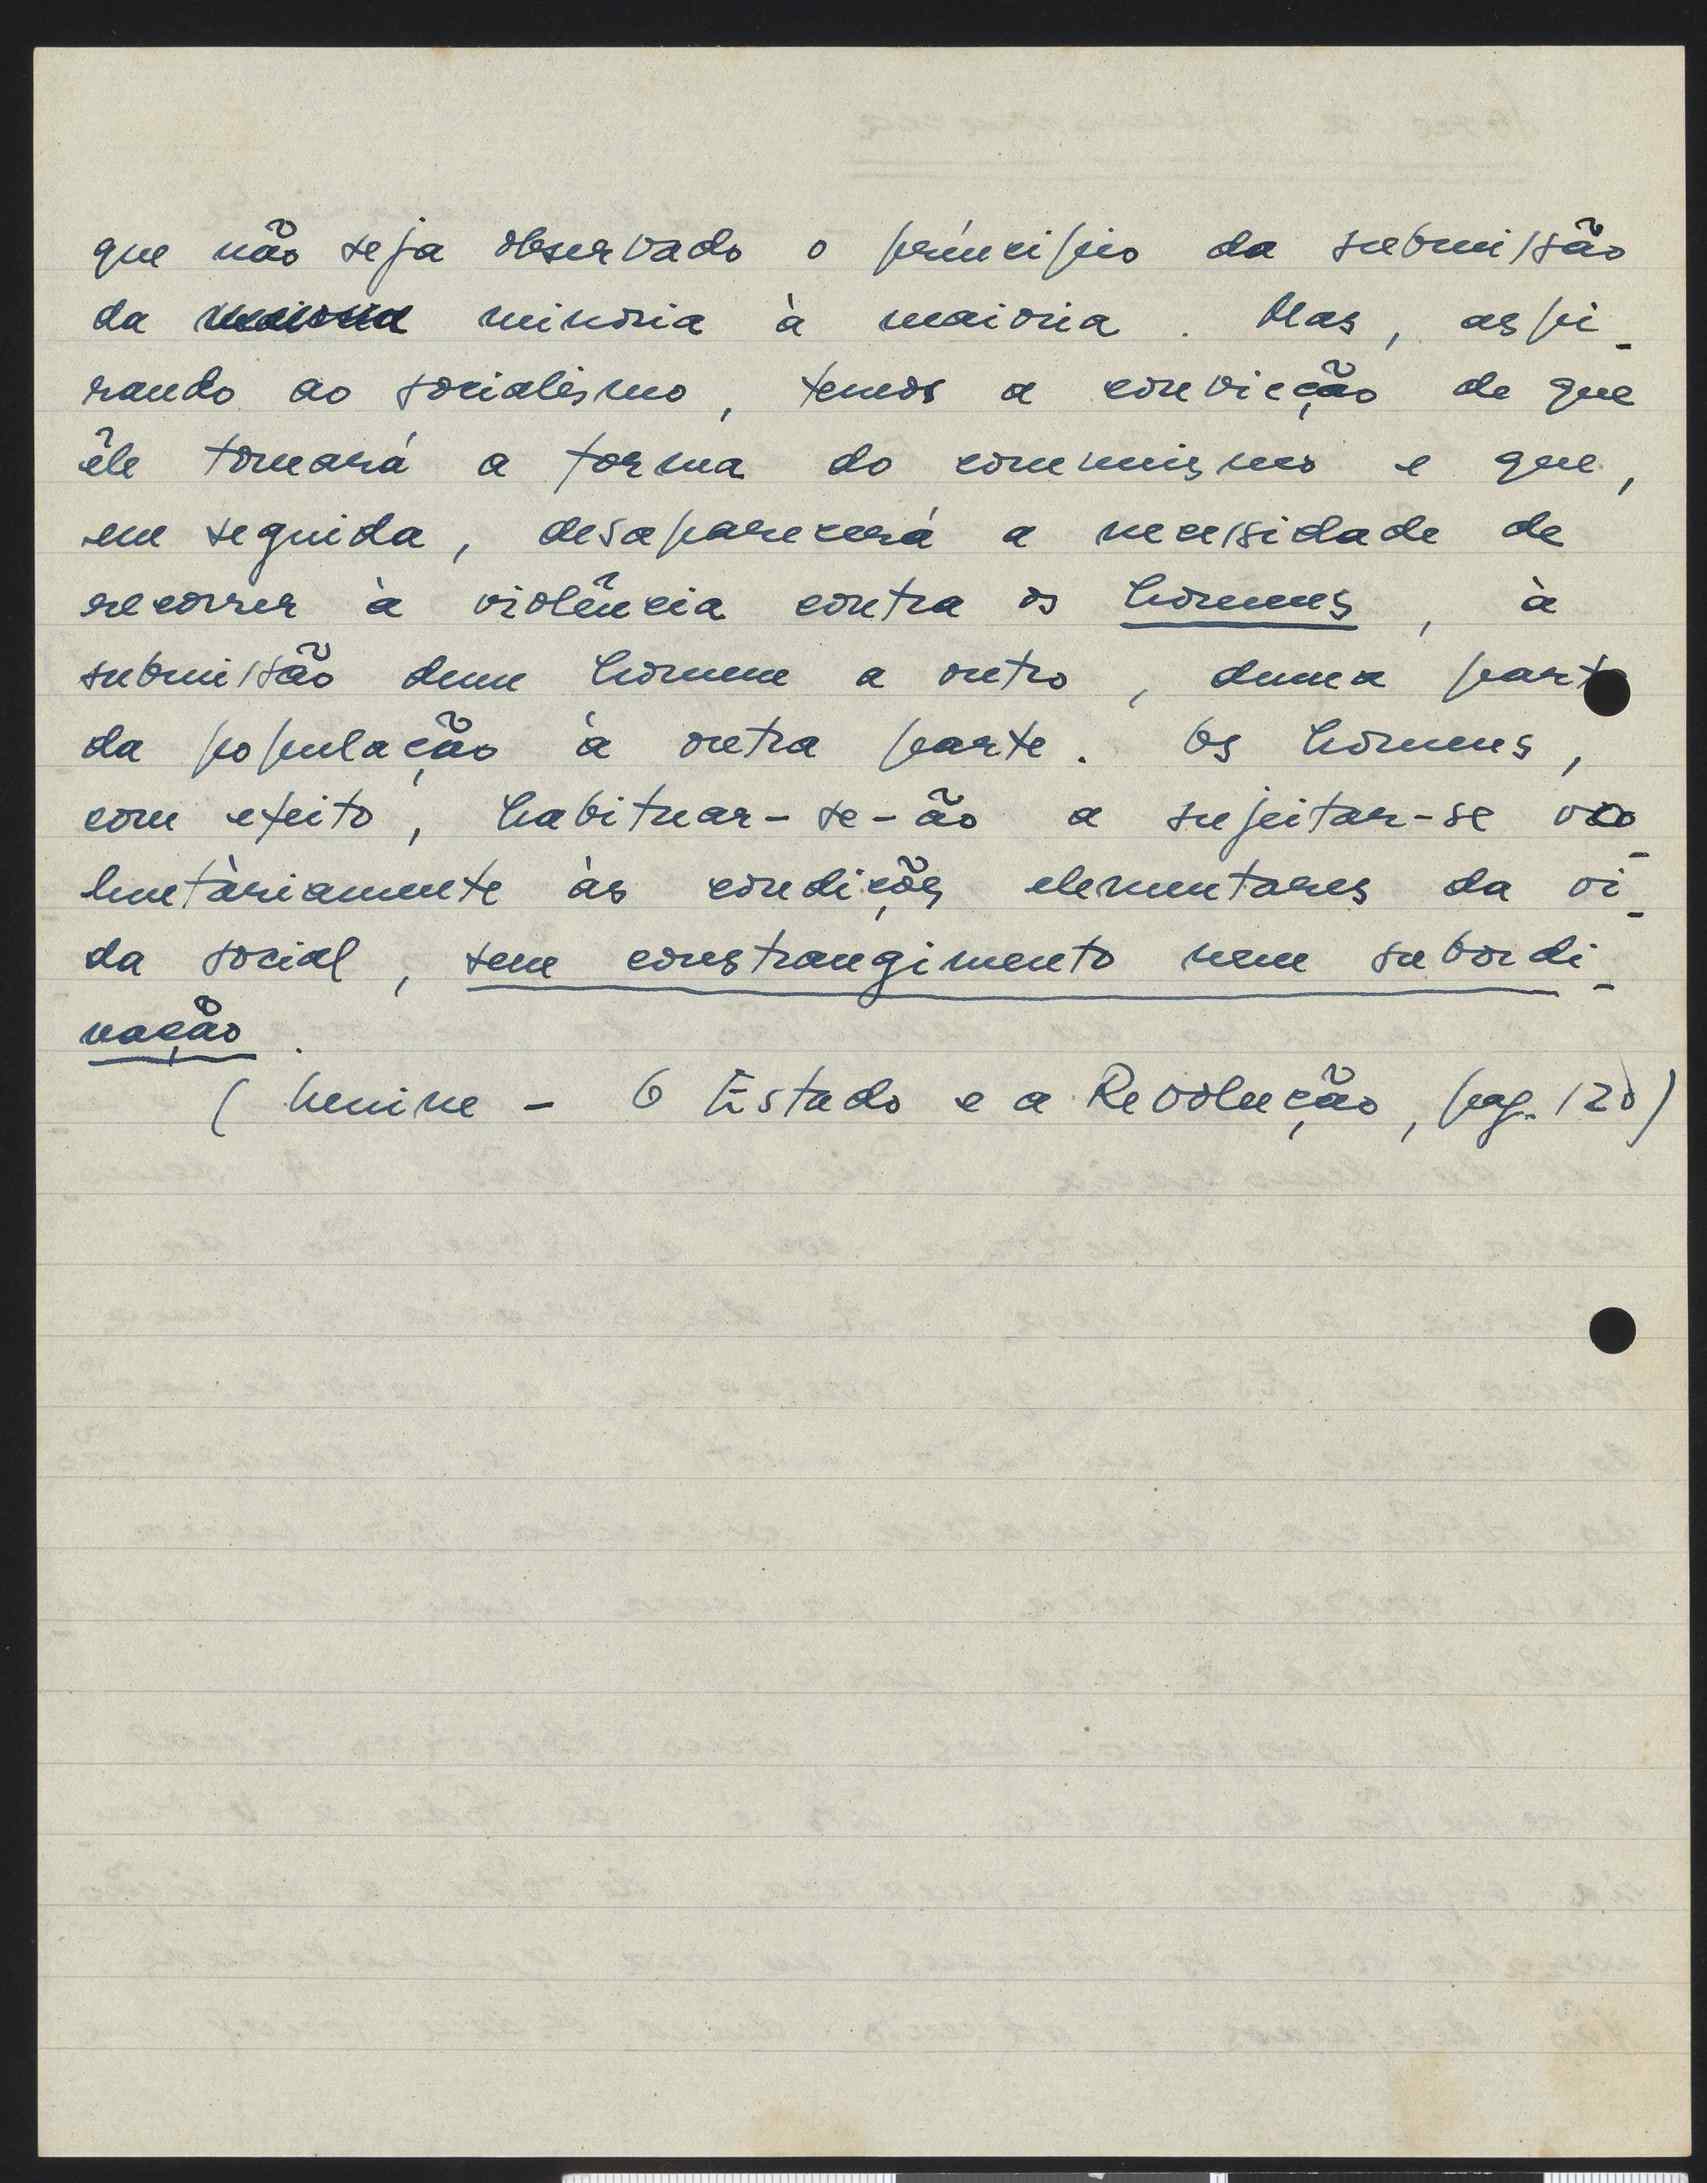 que não seja observado o príncipio da submissão
da maioria minoria à maioria. Mas, aspi-
rando ao socialismo, temos a convicção de que
êle tomará a forma do comunismo e que,
em seguida, desaparecerá a necessidade de
recorrer à violência contra os homens, à
submissão dum homem a outro, duma parte
da população à outra parte. Os homens,
com efeito, habituar-se-ão a sujeitar-se vo-
luntàriamente às condições elementares da vi-
da social, sem constrangimento nem subordi-
nação.
(Lenine - O Estado e a Revolução, pag. 120)